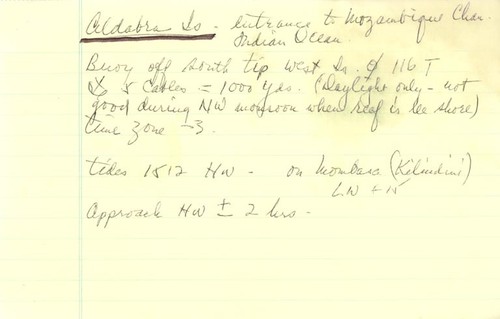 Aldabra Is - entrance to Mozambique Chan.
Indian Ocean.
Buoy off South tip West Is. 116 T
5 Cables = 1000 yds. (Daylight only - not
good during NW monsoon when reef is lee shore)
time zone -3.
tides 1512 HW - on Mombasa (Kilindini)
LW + 15
Approach HW ± 2 hrs -